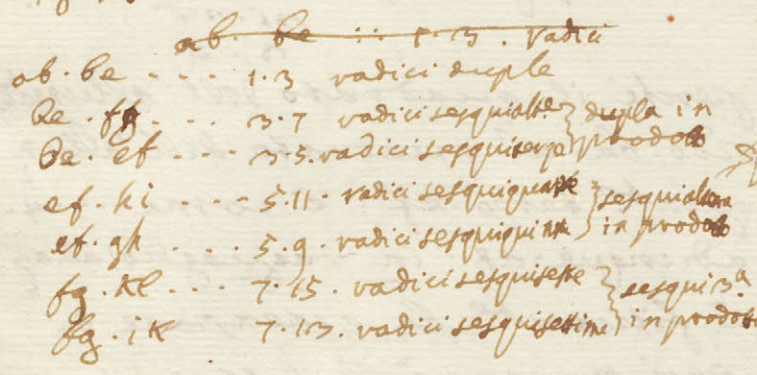 ab. be :: 1.3. radici
ab. be - - - 1.3 radici duple
be. fg. - - - 3.7 radici sesquialte } dupla in
be. ef - - - 3.5. radici sesquiterze } prodotto
ef. hi - - - - 5.11. radici sesquiquarte } sesquialtera
ef. gh - - - - 5.9. radici sesquiquinte } in prodotto
fg. kl - - - 7.15. radici sesquiseste } sesqui3.a
fg. ik 7.13. radici sesquisettime } in prodotto